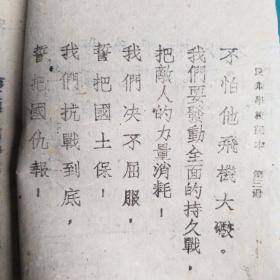 民衆學校課本 第三冊
不怕他飛機大礮。
我們要發動全面的持久戰，
把敵人的力量消耗！
我們决不屈服，
誓把國土保！
我們抗戰到底，
誓把國仇報！